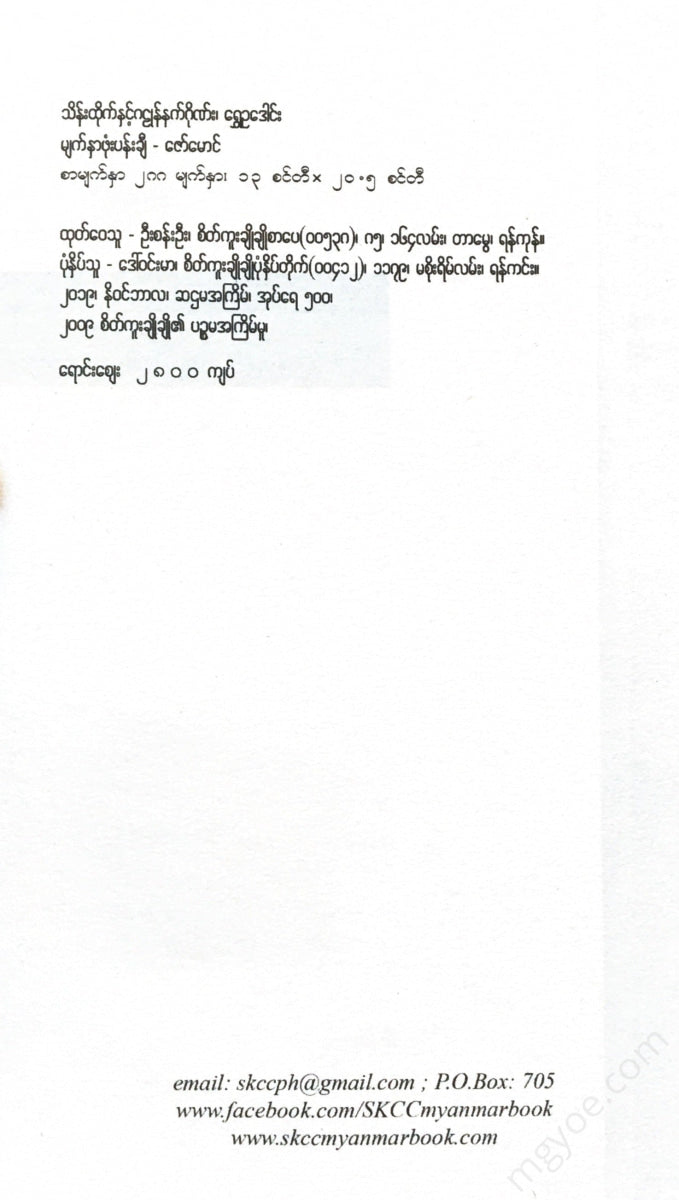 သိန်းထိုက်နှင့်ဂဠုန်နက်ဂိုဏ်း၊ ရွှေဥဒေါင်း
မျက်နှာဖုံးပန်းချီ - ဇော်မောင်
စာမျက်နှာ ၂၈၈ မျက်နှာ၊ ၁၃ စင်တီ× ၂၀.၅ စင်တီ
ထုတ်ဝေသူ - ဦးစန်းဦး၊ စိတ်ကူးချိုချိုစာပေ(၀၀၅၃၈)၊ ၈၅၊ ၁၆၄လမ်း၊ တာမွေ၊ ရန်ကုန်။
ပုံနှိပ်သူ - ဒေါ်ဝင်းမာ၊ စိတ်ကူးချိုချိုပုံနှိပ်တိုက်(၀၀၄၁၂)၊ ၁၁၇၉၊ မစိုးရိမ်လမ်း၊ ရန်ကင်း။
၂၀၁၉၊ နိုဝင်ဘာလ၊ ဆဌမအကြိမ်၊ အုပ်ရေ ၅၀၀၊
၂၀၀၉ စိတ်ကူးချိုချို၏ ပဉ္စမအကြိမ်မူ၊
ရောင်းဈေး ၂၈၀၀ ကျပ်
email: skccph@gmail.com ; P.O.Box: 705
www.facebook.com/SKCCmyanmarbook
www.skccmyanmarbook.com
mgyoe.com